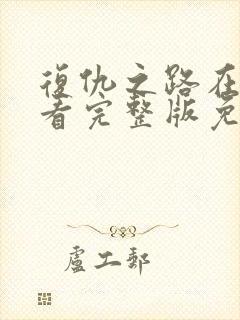 復仇之路在
看完整版免
盧工郵